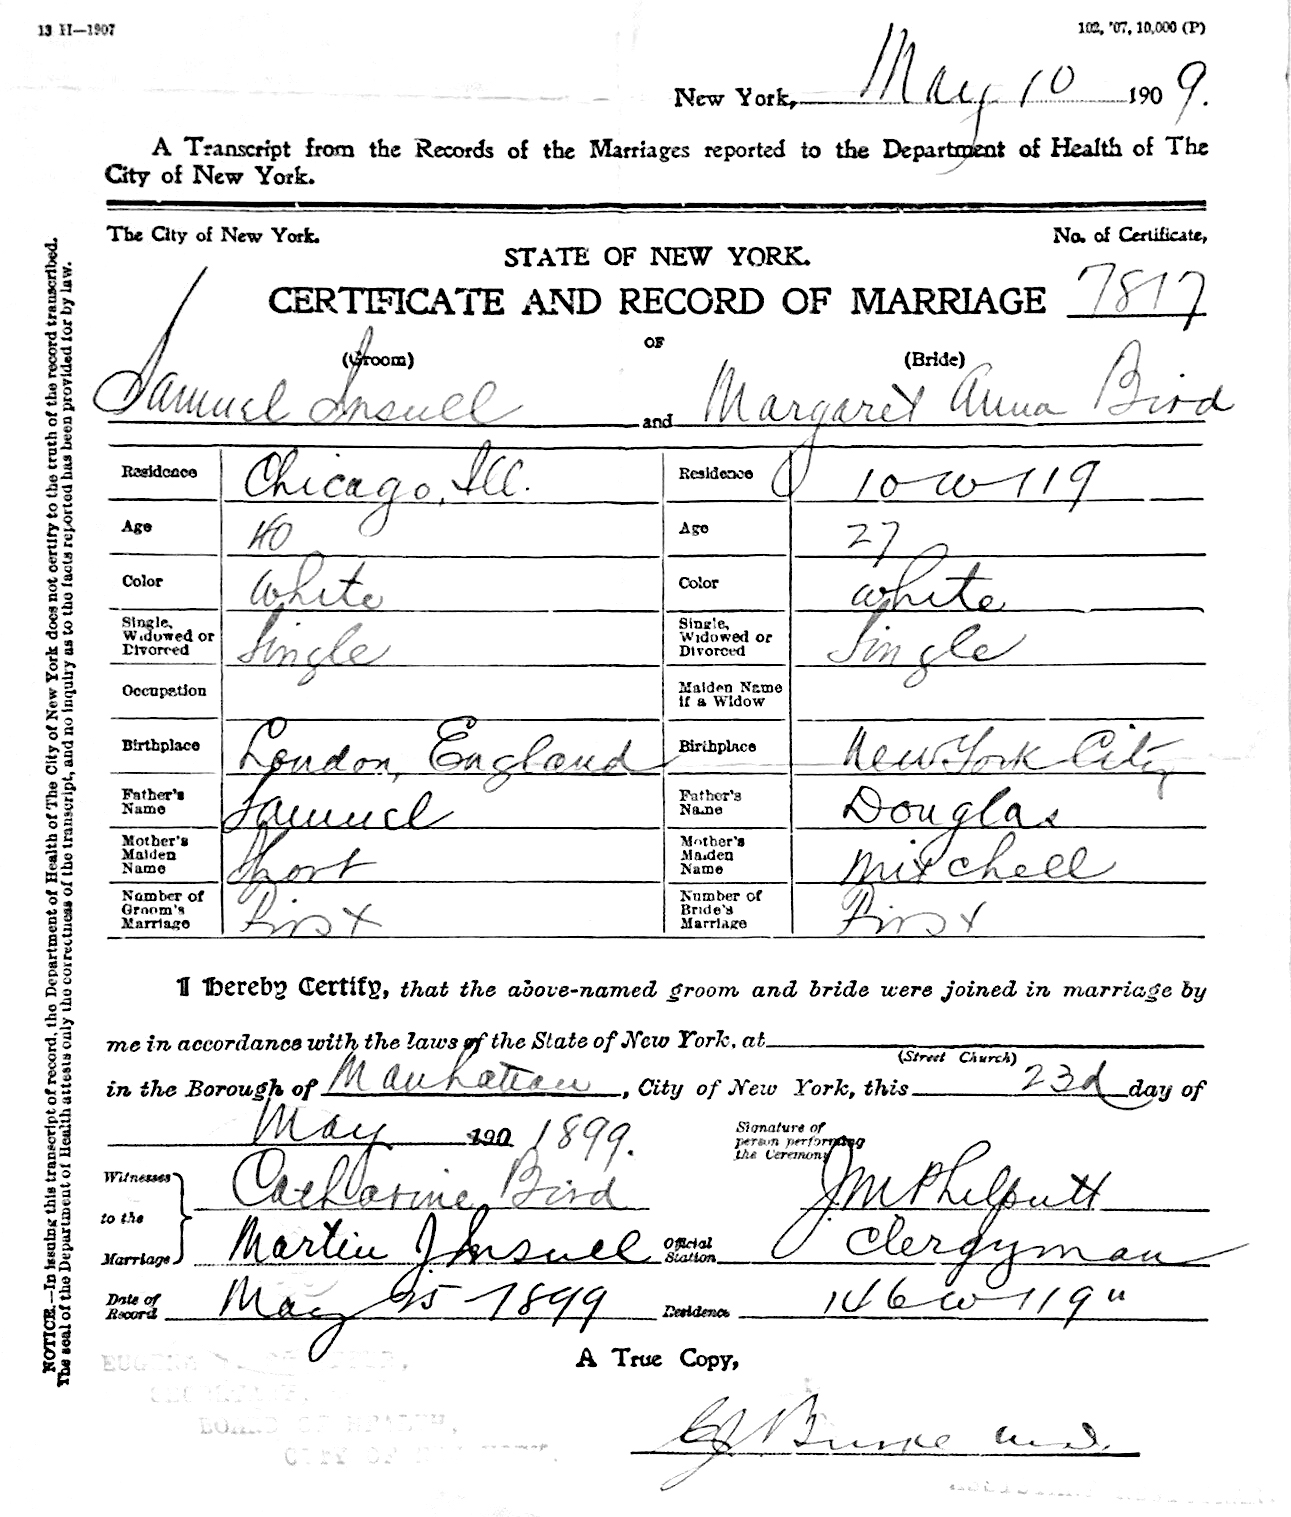 13 H—1907
102, '07, 10,000 (P)
New York, May 10 1909.
A Transcript from the Records of the Marriages reported to the Department of Health of The
City of New York.
The City of New York.
No. of Certificate,
STATE OF NEW YORK.
CERTIFICATE AND RECORD OF MARRIAGE 7817
OF
(Groom) (Bride)
Samuel Insull and Margaret Anna Bird
Residence Chicago, Ill. Residence 10 W 119
Age 40 Age 27
Color White Color White
Single, Widowed or Divorced Single Single, Widowed or Divorced Single
Occupation Maiden Name if a Widow
Birthplace London, England Birthplace New York City
Father's Name Samuel Father's Name Douglas
Mother's Maiden Name Short Mother's Maiden Name Mitchell
Number of Groom's Marriage First Number of Bride's Marriage First
I hereby Certify, that the above-named groom and bride were joined in marriage by
me in accordance with the laws of the State of New York, at
(Street Church)
in the Borough of Manhattan, City of New York, this 23d day of
May 190 1899.
Signature of person performing the Ceremony
Witnesses to the Marriage
Catharine Bird J M Philputt
Martin J. Insull Official Station Clergyman
Date of Record May 25 1899 Residence 146 W 119"
A True Copy,
Burke M.D.
BOARD OF HEALTH,
CITY OF
NOTICE.—In issuing this transcript of record, the Department of Health of The City of New York does not certify to the truth of the record transcribed.
The seal of the Department of Health attests only the correctness of the transcript, and no inquiry as to the facts reported has been provided for by law.